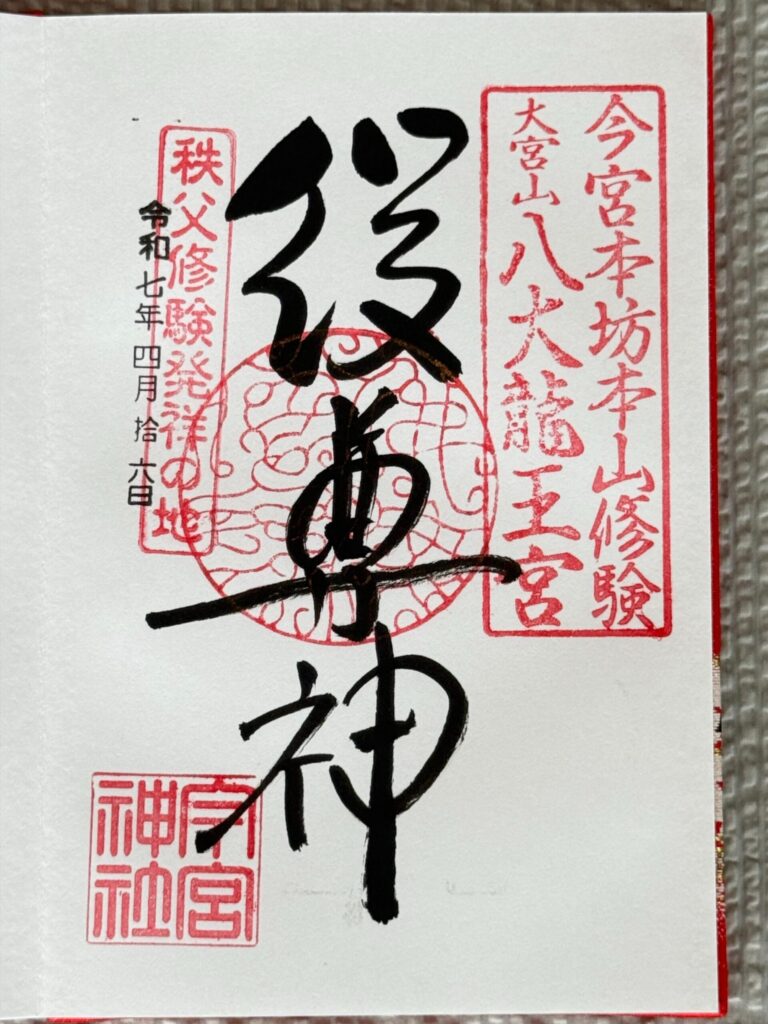 今宮本坊本山修験
大宮山八大龍王宮
役尊神
秩父修験発祥の地
令和七年四月拾六日
今宮神社